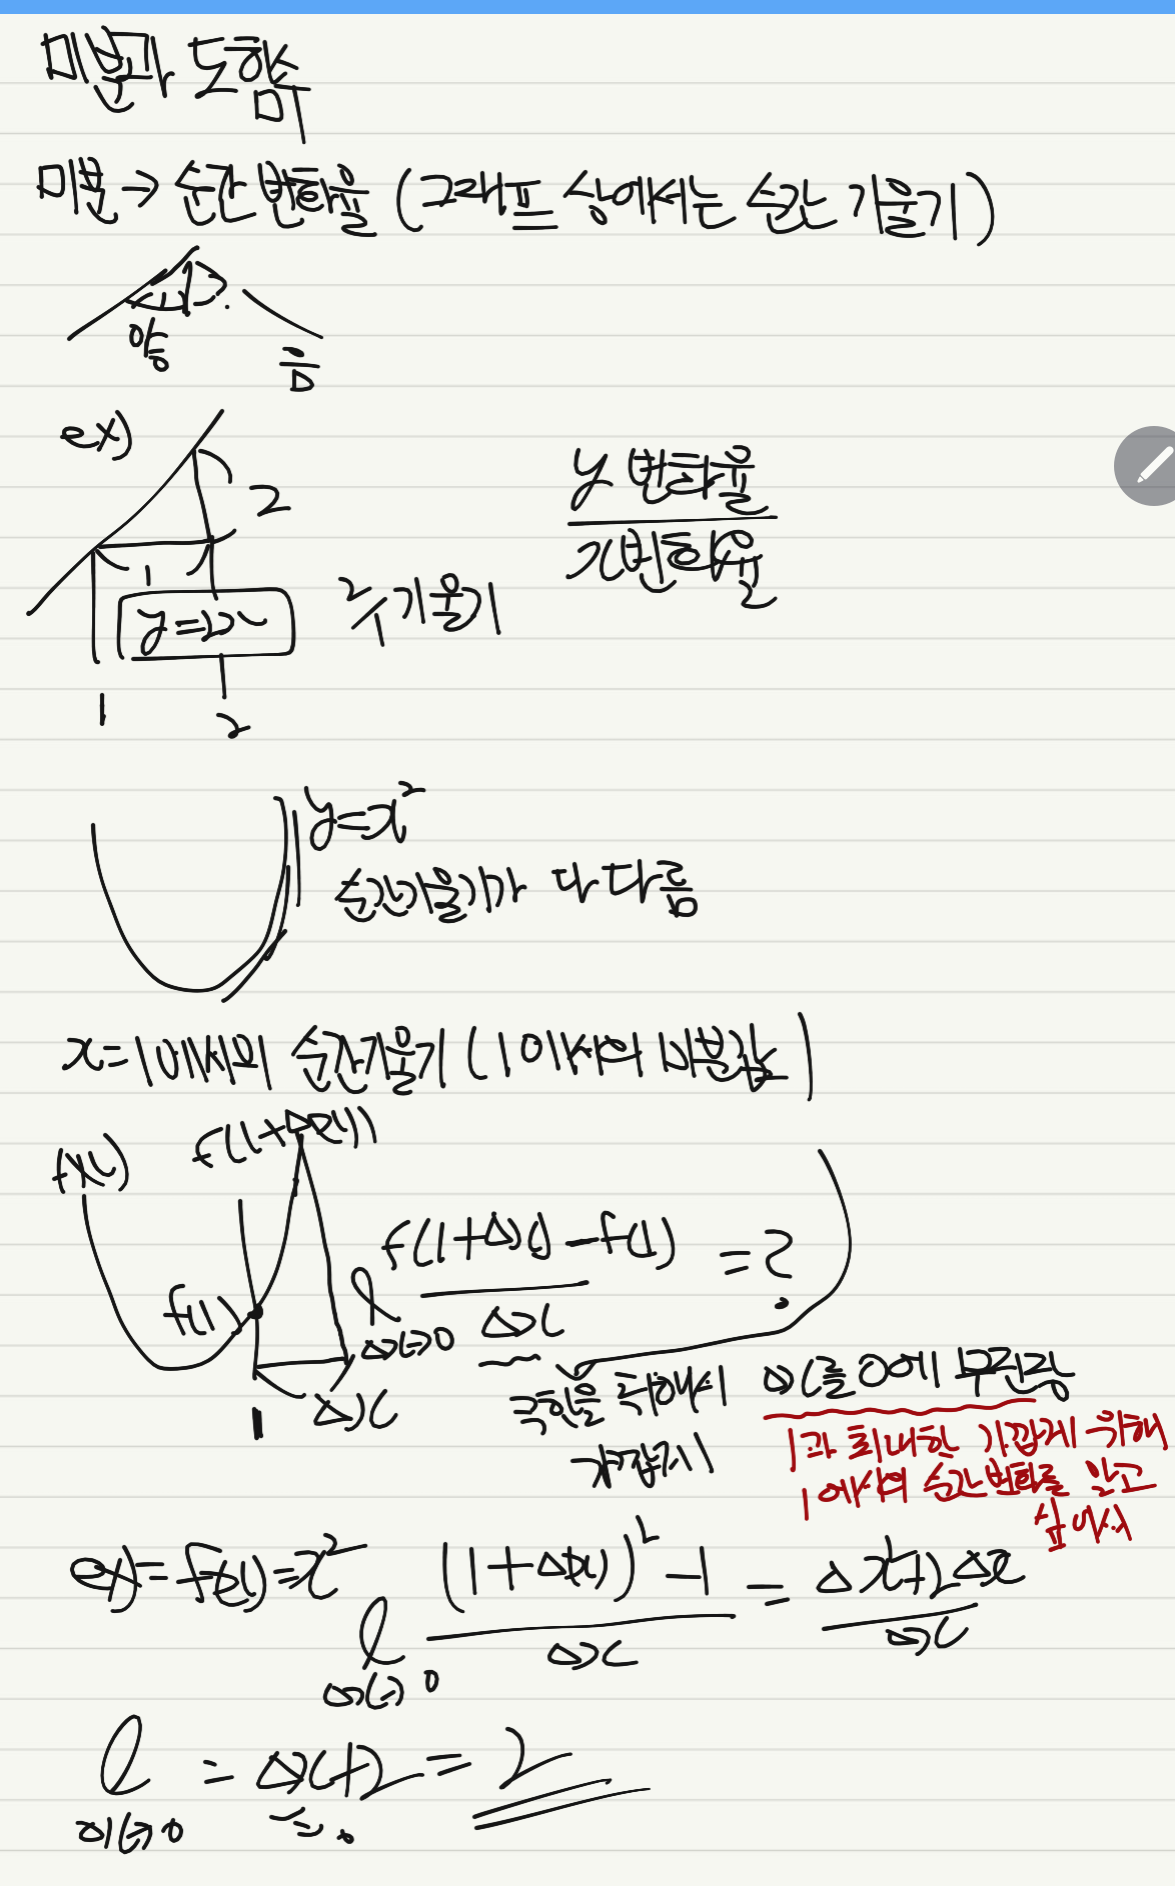 미분과 도함수
미분 → 순간 변화율 (그래프 상에서는 순간 기울기)
양
음
ex)
2
1
y=2x
2/1 기울기
1
2
y 변화율
x 변화율
y=x²
순간기울기가 다 다름
x=1에서의 순간기울기 (1에서의 미분값)
f(x)
f(1+Δx)
f(1)
1
Δx
l Δx→0 f(1+Δx)-f(1) / Δx = ?
극한을 취해서 Δx를 0에 무한정
가깝게
1과 최대한 가깝게 위해
1에서의 순간변화를 알고
싶어서
ex)= f(x)=x²
l Δx→0 (1+Δx)²-1 / Δx = Δx²+2Δx / Δx
l Δx→0 = Δx+2 = 2